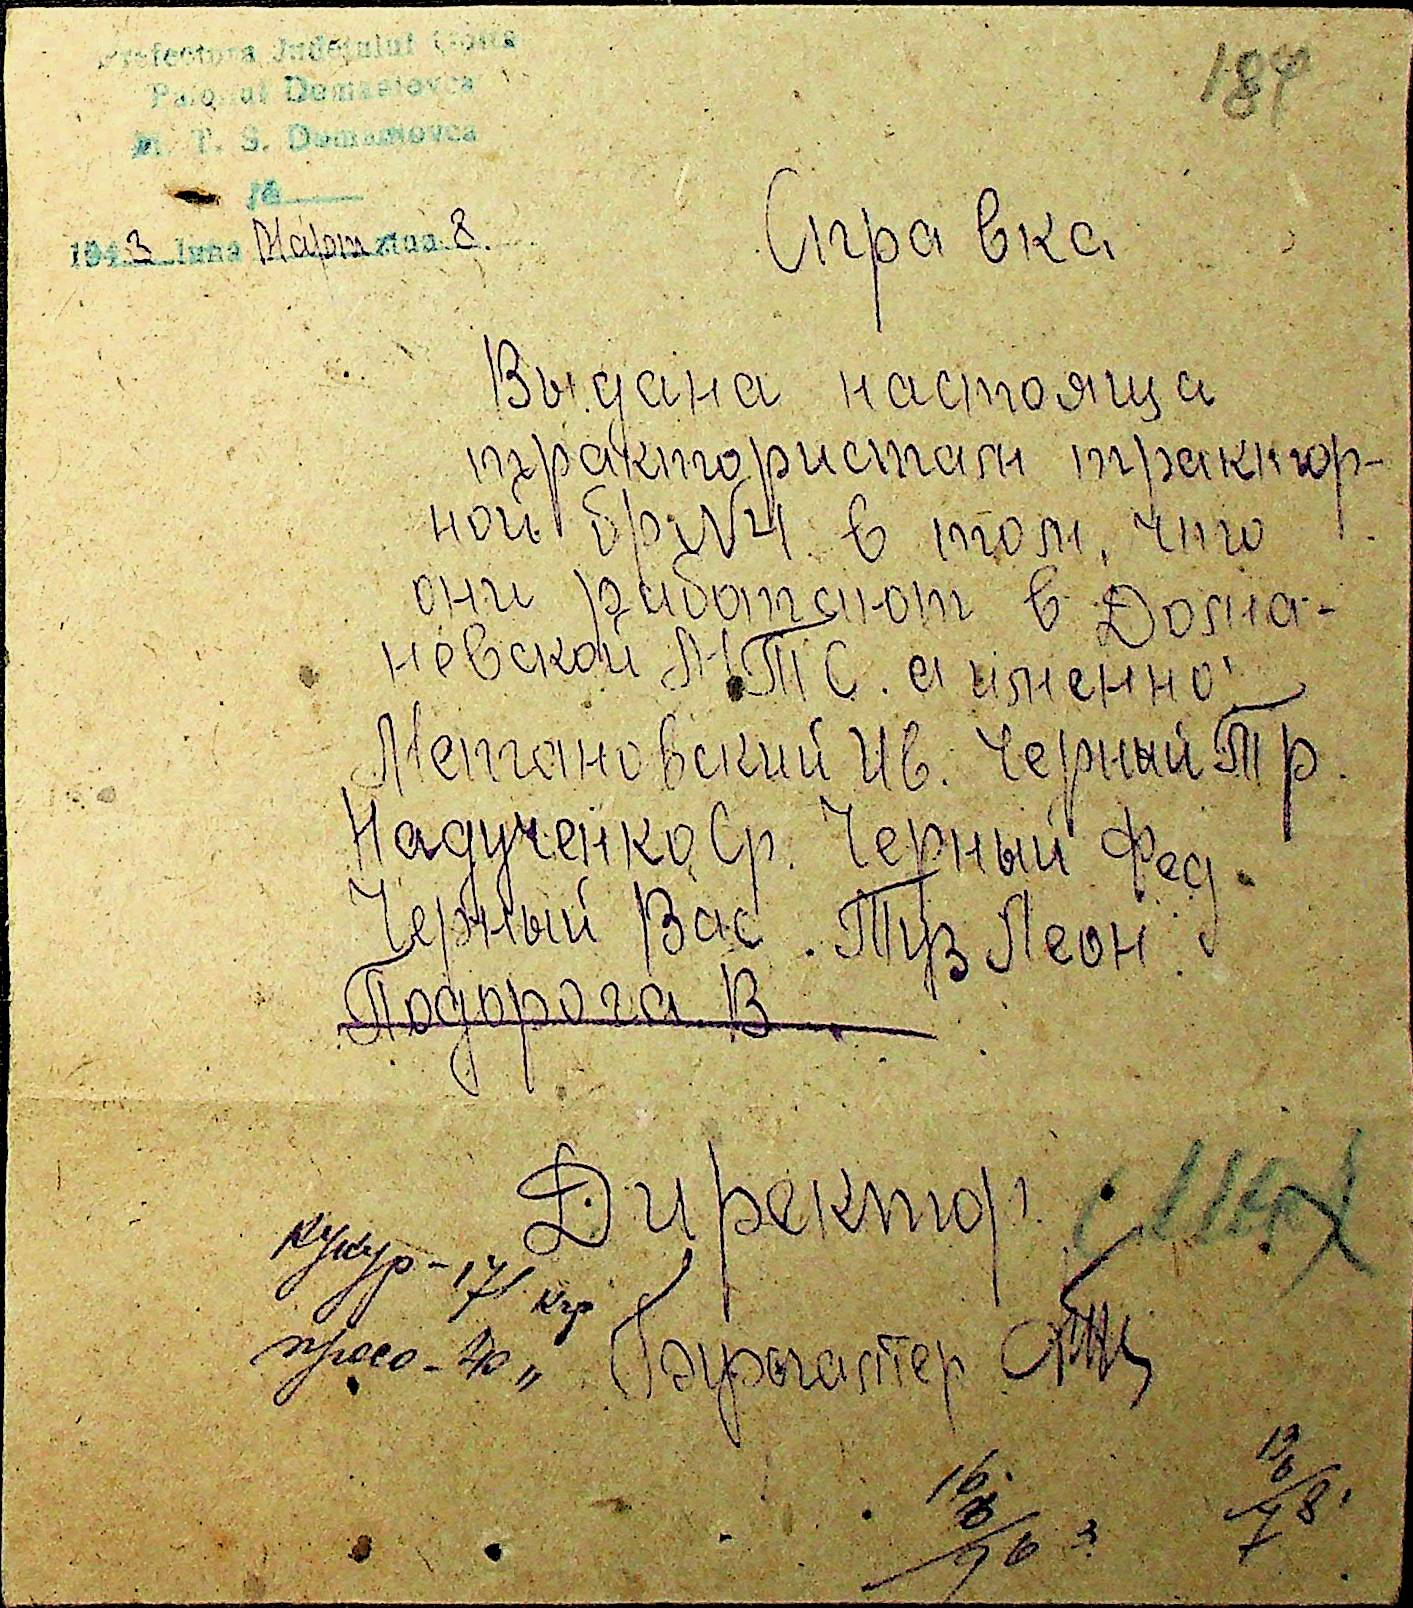 Prefectura Județului Golta
Raionul Domaniovca
M. T. S. Domaniovca
№
1943 luna Март ziua 8.
184
Справка
Выдана настояща
трактористам трактор-
ной бр №4 в том, что
они работают в Дома-
невской М.Т.С. а именно:
Мептановский Ив. Черный Тр.
Надученко Ср. Черный Фед.
Черный Вас. Туз Леон.
Подорога В
Директор
кукур - 17 кгр
просо - 40 „
Бухгалтер
16
6
96 3
13
6
78